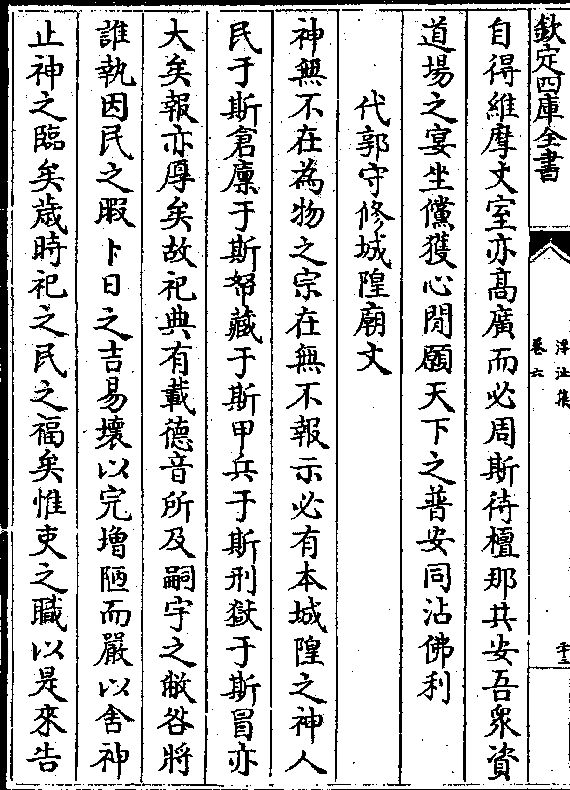 欽定四庫全書
浮沚集
卷六
自得維摩丈室亦髙廣而必周斯待檀那共安吾衆資
道場之宴坐儻獲心閒願天下之普安同沾佛利
代郭守修城隍廟文
神無不在為物之宗在無不報示必有本城隍之神人
民于斯倉廩于斯帑藏于斯甲兵于斯刑獄于斯冒亦
大矣報亦厚矣故祀典有載德音所及嗣宇之敝咎將
誰執因民之暇卜日之吉易壞以完增陋而嚴以舍神
止神之臨矣歳時祀之民之福矣惟吏之職以是來告